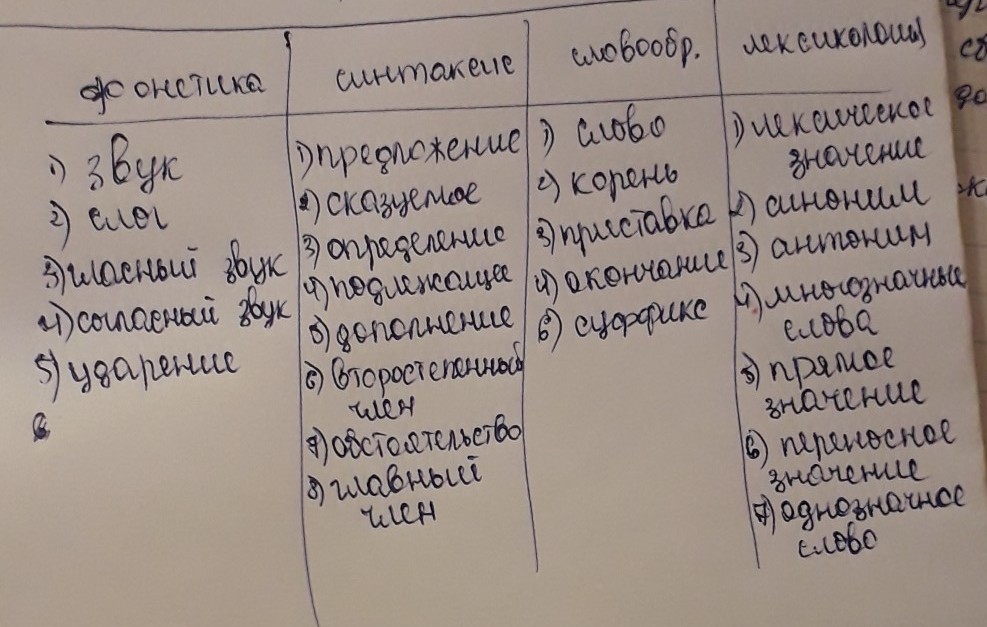 фонетика
1) звук
2) слог
3) гласный звук
4) согласный звук
5) ударение
синтаксис
1) предложение
2) сказуемое
3) определение
4) подлежащее
5) дополнение
6) второстепенный
член
7) обстоятельство
8) главный
член
словообр.
1) слово
2) корень
3) приставка
4) окончание
6) суффикс
лексикология
1) лексическое
значение
2) синоним
3) антоним
4) многозначные
слова
5) прямое
значение
6) переносное
значение
7) однозначное
слово